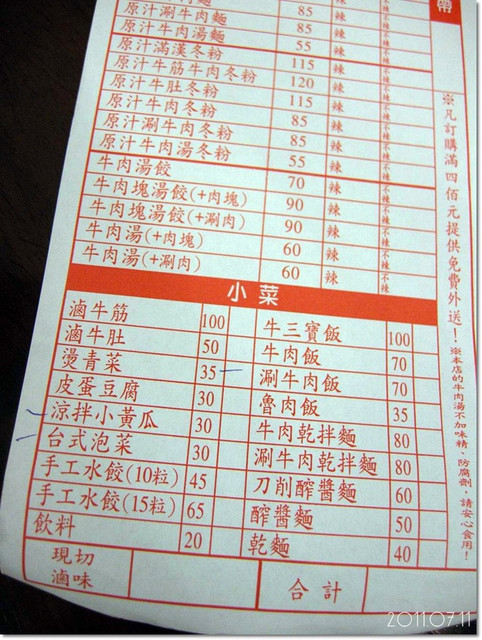 麵 85 辣 不辣
原汁涮牛肉麵 85 辣 不辣
原汁牛肉湯麵 55 辣 不辣
原汁滿漢冬粉 115 辣 不辣
原汁牛筋牛肉冬粉 120 辣 不辣
原汁牛肚冬粉 115 辣 不辣
原汁牛肉冬粉 85 辣 不辣
原汁涮牛肉冬粉 85 辣 不辣
原汁牛肉湯冬粉 55 辣 不辣
牛肉湯餃 70 辣 不辣
牛肉塊湯餃(+肉塊) 90 辣 不辣
牛肉塊湯餃(+涮肉) 90 辣 不辣
牛肉湯(+肉塊) 60 辣 不辣
牛肉湯(+涮肉) 60 辣 不辣
小菜
滷牛筋 100 牛三寶飯 100
滷牛肚 50 牛肉飯 70
燙青菜 35 涮牛肉飯 70
皮蛋豆腐 30 魯肉飯 35
涼拌小黃瓜 30 牛肉乾拌麵 80
台式泡菜 30 涮牛肉乾拌麵 80
手工水餃(10粒) 45 刀削醡醬麵 60
手工水餃(15粒) 65 醡醬麵 50
飲料 20 乾麵 40
現切滷味 合計
帶
※凡訂購滿四佰元提供免費外送!
※本店的牛肉湯不加味精、防腐劑，請安心食用!
2011.07.11